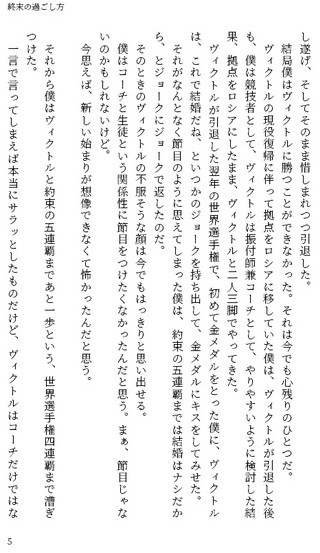 終末の過ごし方
し遂げ、そしてそのまま惜しまれつつ引退した。
結局僕はヴィクトルに勝つことができなかった。それは今でも心残りのひとつだ。
ヴィクトルの現役復帰に伴って拠点をロシアに移していた僕は、ヴィクトルが引退した後
も、僕は競技者として、ヴィクトルは振付師兼コーチとして、やりやすいように検討した結
果、拠点をロシアにしたまま、ヴィクトルと二人三脚でやってきた。
ヴィクトルが引退した翌年の世界選手権で、初めて金メダルをとった僕に、ヴィクトル
は、これで結婚だね、といつかのジョークを持ち出して、金メダルにキスをしてみせた。
それがなんとなく節目のように思えてしまった僕は、約束の五連覇までは結婚はナシだか
ら、とジョークにジョークで返したのだ。
そのときのヴィクトルの不服そうな顔は今でもはっきりと思い出せる。
僕はコーチと生徒という関係性に節目をつけたくなかったんだと思う。まぁ、節目じゃな
いのかもしれないけど。
今思えば、新しい始まりが想像できなくて怖かったんだと思う。
それから僕はヴィクトルと約束の五連覇まであと一歩という、世界選手権四連覇まで漕ぎ
つけた。
一言で言ってしまえば本当にサラッとしたものだけど、ヴィクトルはコーチだけではな
5